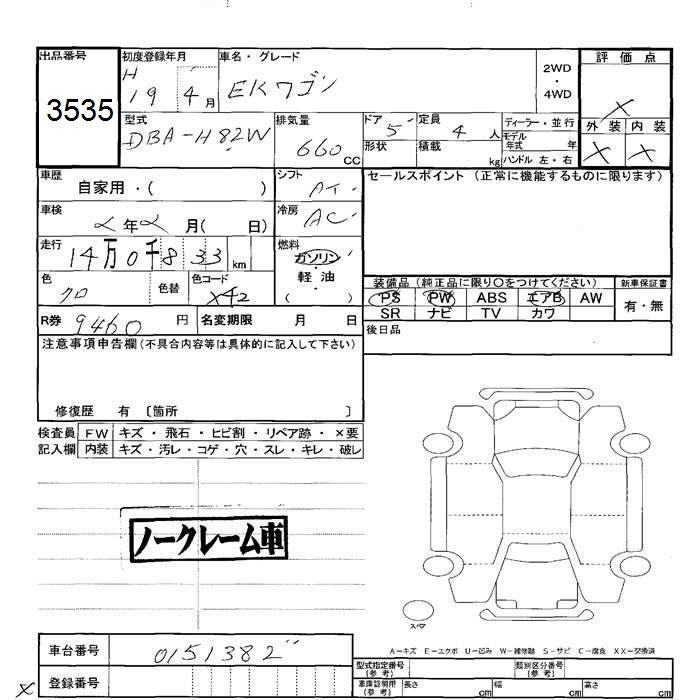 出品番号 初度登録年月 車名・グレード 2WD ・ 4WD 評価点
3535 H 19 4月 EKワゴン ×
型式 DBA-H82W 排気量 660 CC ドア 5 定員 4 人 ディーラー・並行 外装 内装
形状 積載 kg モデル年式 年 × ×
ハンドル 左・右
車歴 自家用・( ) シフト AT セールスポイント (正常に機能するものに限ります)
車検 年 月( 日) 冷房 AC
走行 14万0千833 km 燃料 ガソリン・軽油・( )
色 クロ 色替 色コード X42 装備品 (純正品に限り○をつけてください) 新車保証書
PS PW ABS エアB AW 有・無
R券 9460 円 名変期限 月 日 SR ナビ TV カワ
注意事項申告欄(不具合内容等は具体的に記入して下さい) 後日品
修復歴 有 〔箇所 〕
検査員 FW キズ・飛石・ヒビ割・リペア跡・×要
記入欄 内装 キズ・汚レ・コゲ・穴・スレ・キレ・破レ
ノークレーム車
スペア
A-キズ E-エクボ U-凹み W-補修跡 S-サビ C-腐食 XX-交換済
車台番号 0151382
型式指定番号(参考) 類別区分番号(参考)
× 登録番号 車庫証明用(参考) 長さ cm 幅 cm 高さ cm